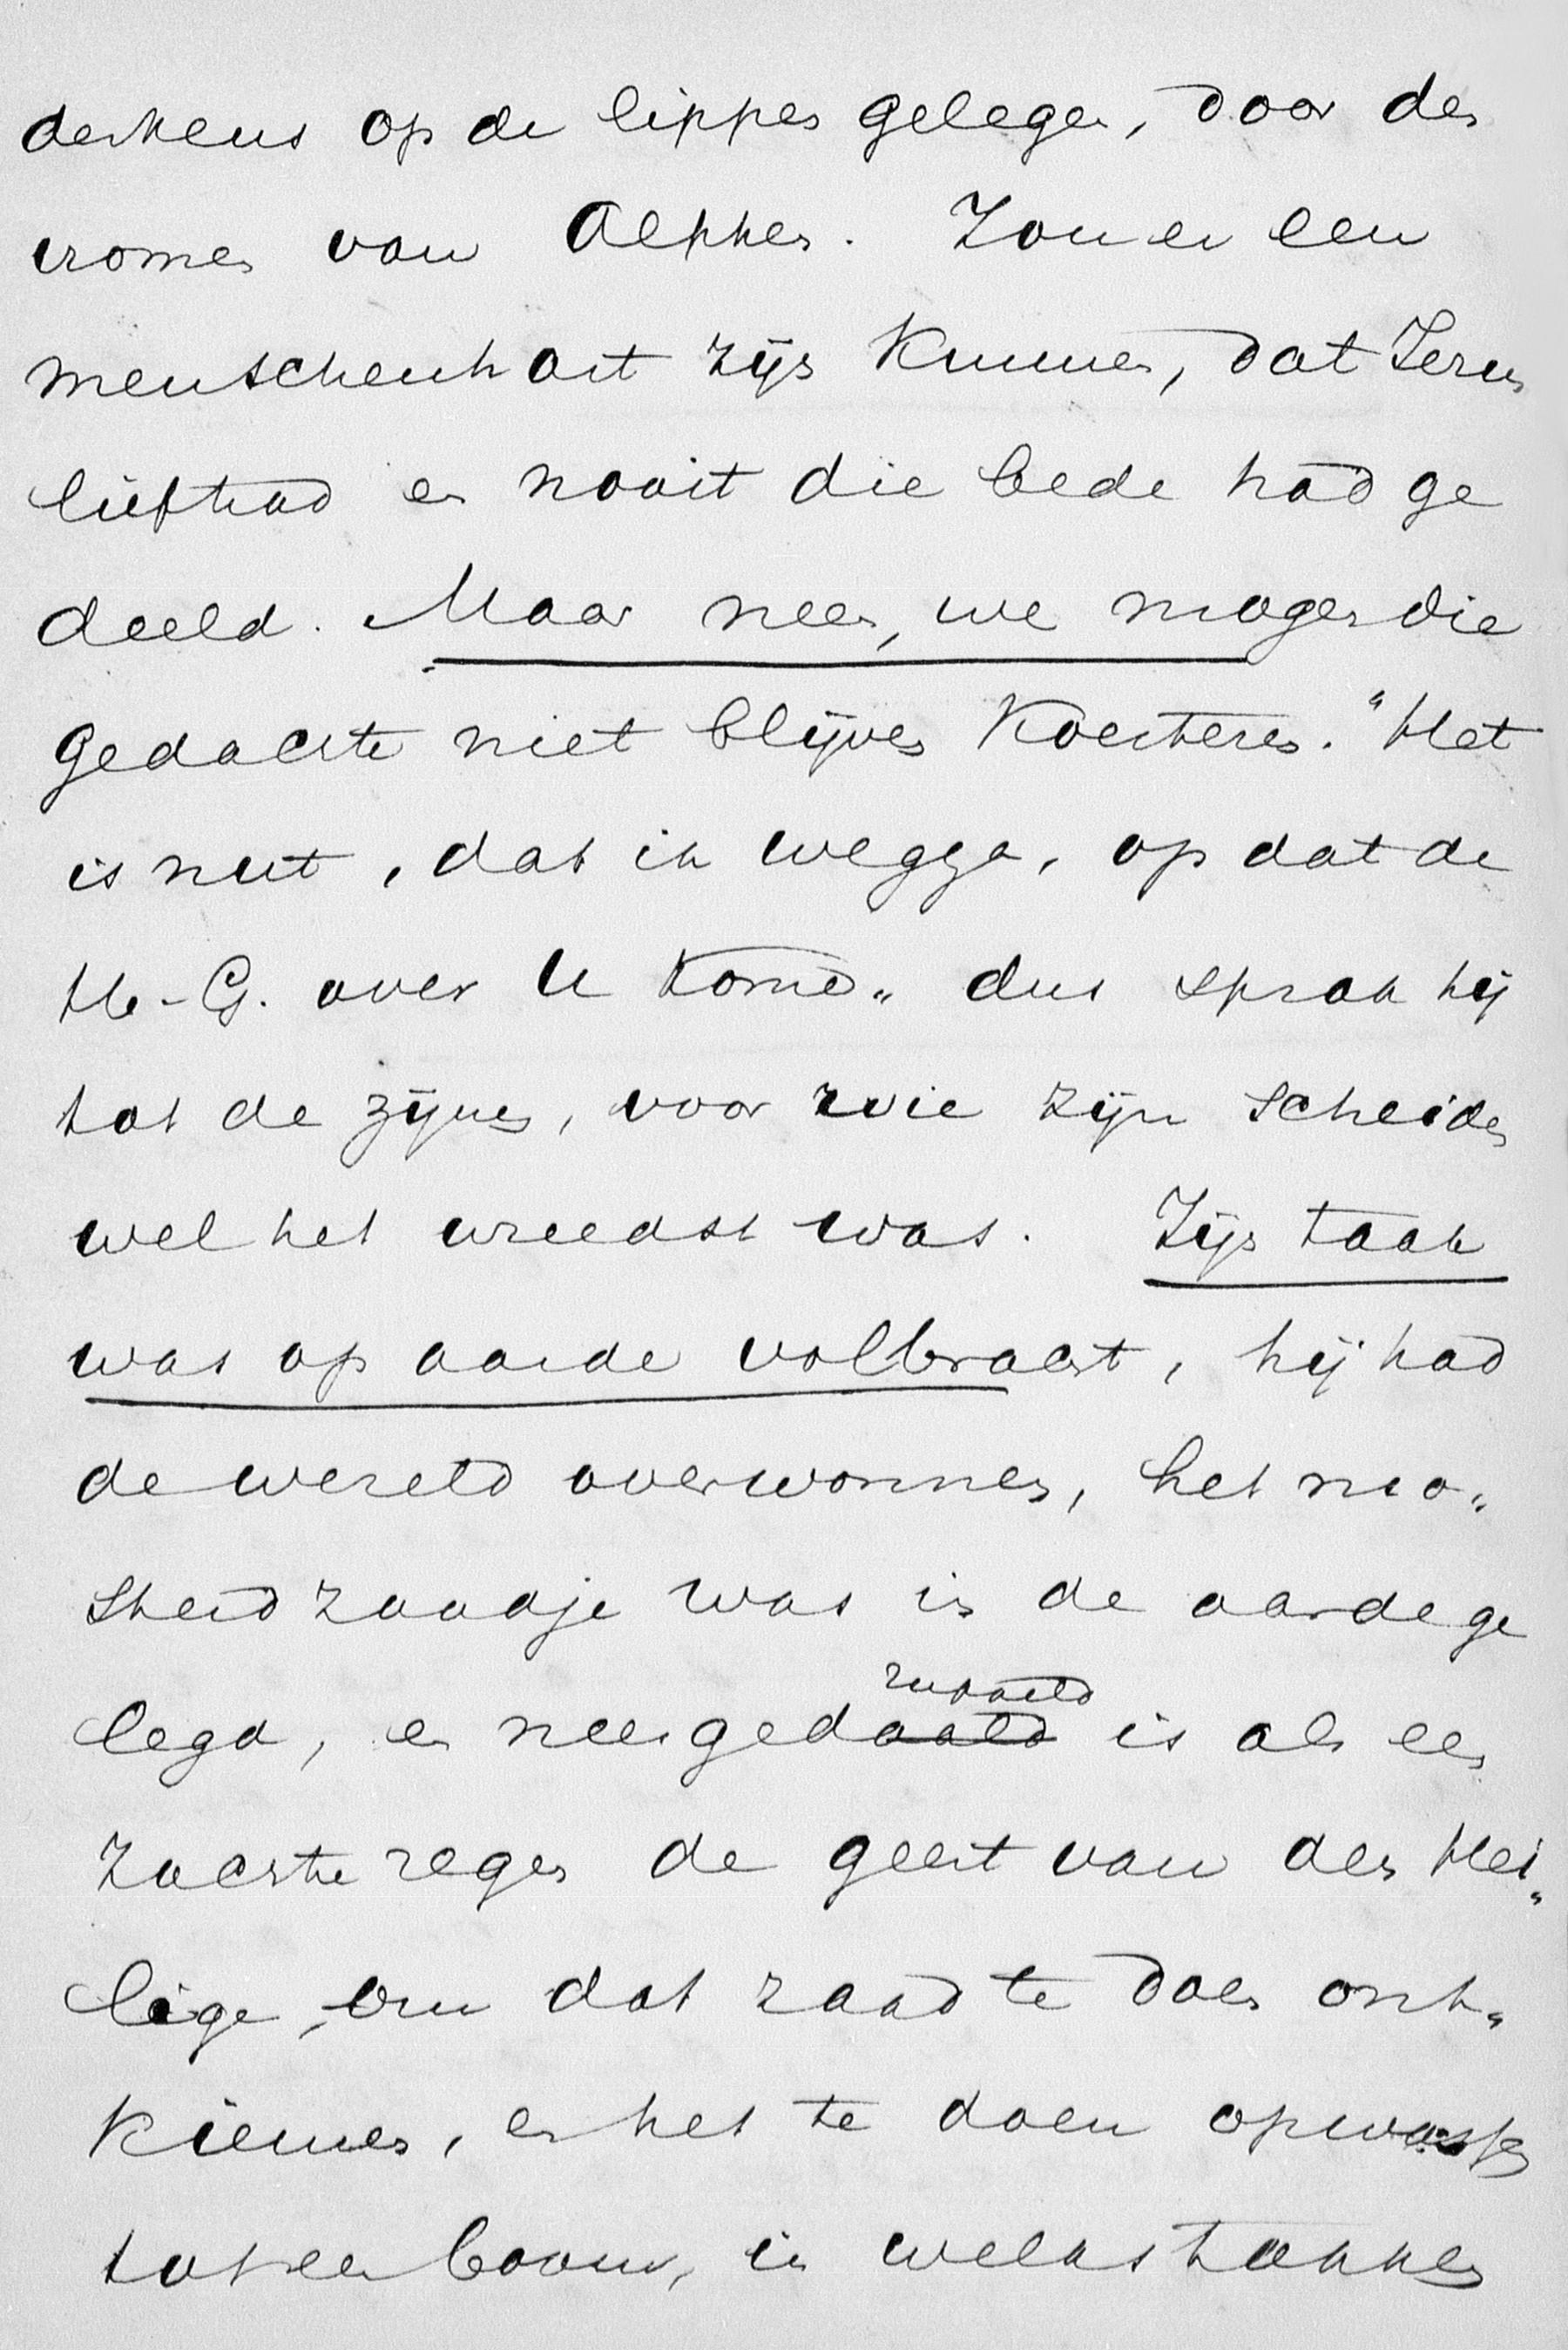 derkens op de lippen gelegen, door den
vromen van Alphen. Zou er een
menschenhart zijn kunnen, dat Jezus
liefhad en nooit die bede had ge
deeld. Maar neen, we mogen die
gedachte niet blijven koesteren. "Het
is nut, dat ik wegga, op dat de
H-G. over U kome" dus sprak hij
tot de zijnen, voor wie zijn scheiden
wel het wreedst was. Zijn taak
was op aarde volbracht, hij had
de wereld overwonnen, het mo„
sterdzaadje was in de aarde ge
legd, en neergedaald is als een
zachte regen de geest van den Hei„
lige, om dat zaad te doen ont„
kiemen, en het te doen opwassen
tot een boom, in welks takken